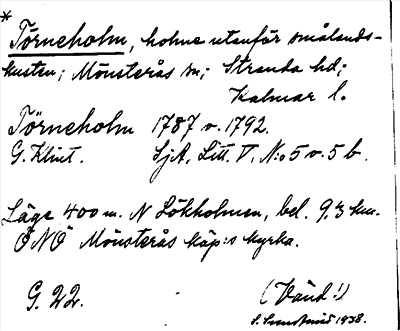 *
Törneholm, holme utanför smålands-
kusten; Mönsterås sn; Stranda hd;
Kalmar l.
Törneholm 1787 o. 1792.
G. Klint. SjA, Litt. V, N:o 5 o. 5 b.
Läge 400 m. N Lökholmen, bel. 9,3 km.
ÖNÖ Mönsterås köp:s kyrka.
G. 22. (Vänd!)
S. 1938.